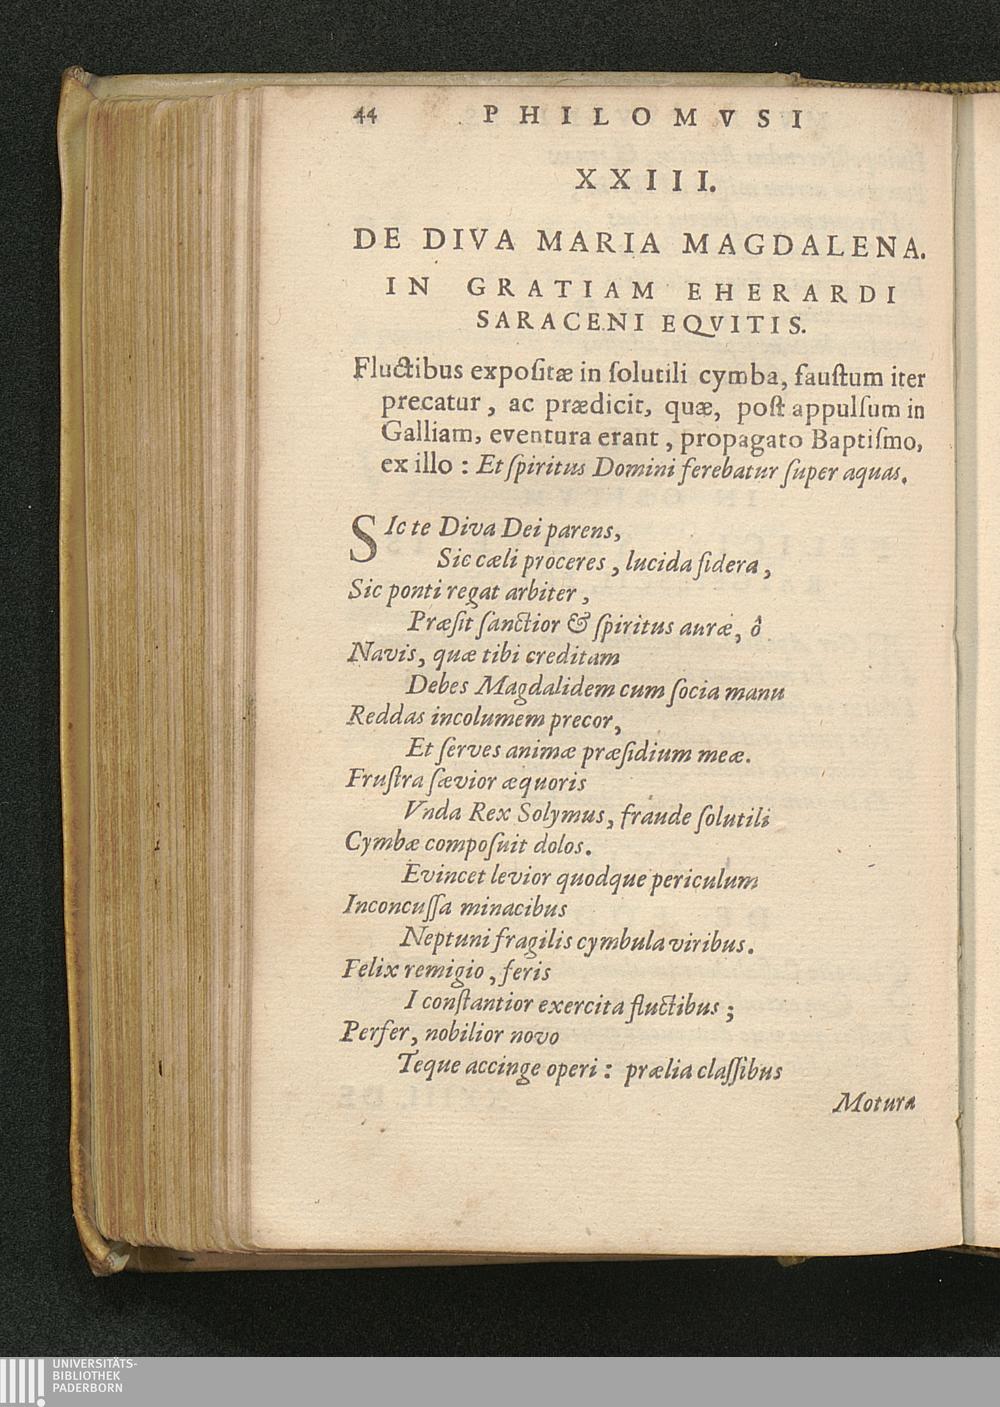 44 PHILOMVSI
XXIII.
DE DIVA MARIA MAGDALENA.
IN GRATIAM EHERARDI
SARACENI EQVITIS.
Fluctibus expoſitæ in ſolutili cymba, fauſtum iter
precatur, ac prædicit, quæ, poſt appulſum in
Galliam, eventura erant, propagato Baptiſmo,
ex illo : Et ſpiritus Domini ferebatur ſuper aquas.
SIc te Diva Dei parens,
Sic cæli proceres, lucida ſidera,
Sic ponti regat arbiter,
Præſit ſanctior & ſpiritus auræ, ô
Navis, quæ tibi creditam
Debes Magdalidem cum ſocia manu
Reddas incolumem precor,
Et ſerves animæ præſidium meæ.
Fruſtra ſævior æquoris
Vnda Rex Solymus, fraude ſolutili
Cymbæ compoſuit dolos.
Evincet levior quodque periculum
Inconcuſſa minacibus
Neptuni fragilis cymbula viribus.
Felix remigio, feris
I conſtantior exercita fluctibus ;
Perfer, nobilior novo
Teque accinge operi : prælia claſſibus
Motura
UNIVERSITÄTS-
BIBLIOTHEK
PADERBORN